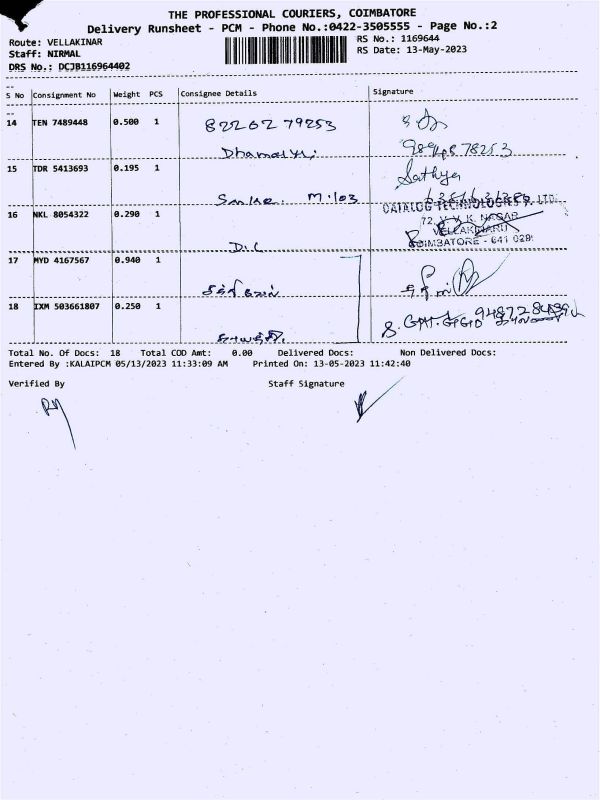 THE PROFESSIONAL COURIERS, COIMBATORE
Delivery Runsheet - PCM - Phone No.:0422-3505555 - Page No.:2
Route: VELLAKINAR
RS No.: 1169644
Staff: NIRMAL
RS Date: 13-May-2023
DRS No.: DCJB116964402
S No Consignment No Weight PCS Consignee Details Signature
14 TEN 7489448 0.500 1 82262 79253
15 TDR 5413693 0.195 1 Sathya
CATALOG TECHNOLOGIES P. LTD.
16 NKL 8054322 0.290 1 72, V.V.K. NAGAR
VELLAKINARU
D.C COIMBATORE - 641 029
17 MYD 4167567 0.940 1
18 IXM 503661807 0.250 1
Total No. Of Docs: 18 Total COD Amt: 0.00 Delivered Docs: Non Delivered Docs:
Entered By :KALAIPCM 05/13/2023 11:33:09 AM Printed On: 13-05-2023 11:42:40
Verified By Staff Signature